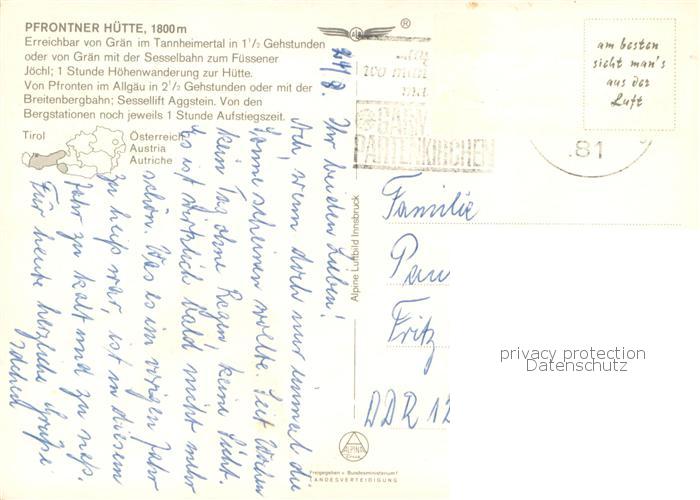 PFRONTNER HÜTTE, 1800 m
Erreichbar von Grän im Tannheimertal in 1½ Gehstunden
oder von Grän mit der Sesselbahn zum Füssener
Jöchl; 1 Stunde Höhenwanderung zur Hütte.
Von Pfronten im Allgäu in 2½ Gehstunden oder mit der
Breitenbergbahn; Sessellift Aggstein. Von den
Bergstationen noch jeweils 1 Stunde Aufstiegszeit.
Tirol
Österreich
Austria
Autriche
24/8.
Ihr beiden Lieben!
Ach, wenn doch nur einmal die
Sonne scheinen wollte. Seit Wochen
kein Tag ohne Regen, keine Sicht.
Es ist wirklich bald nicht mehr
schön. Was es im vorigen Jahr
zu heiß war, ist in diesem
Jahr zu kalt und zu naß.
Für heute herzliche Grüße
Alpine Luftbild Innsbruck
®
100
GARM
PARTENKIRCHEN
.81
am besten
sieht man's
aus der
Luft
Familie
Pau
Fritz
DDR 12
privacy protection
Datenschutz
ALPINA
Freigegeben v. Bundesministerium f.
LANDESVERTEIDIGUNG